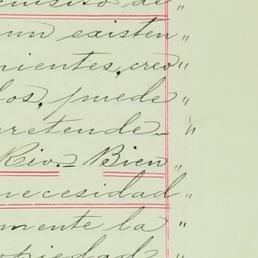 cuisito de
un existen "
nientes, creo "
los, puede "
pretende- "
Rio.- Bien "
necesidad "
mente la "
opiedad